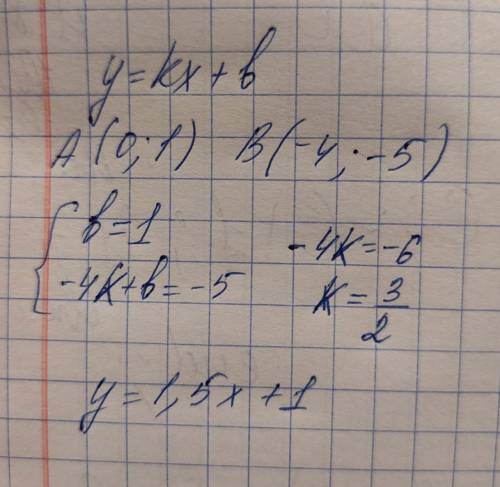 y = kx + b
A (0; 1) B (-4; -5)
{ b = 1
-4k + b = -5
-4k = -6
k = 3/2
y = 1,5x + 1